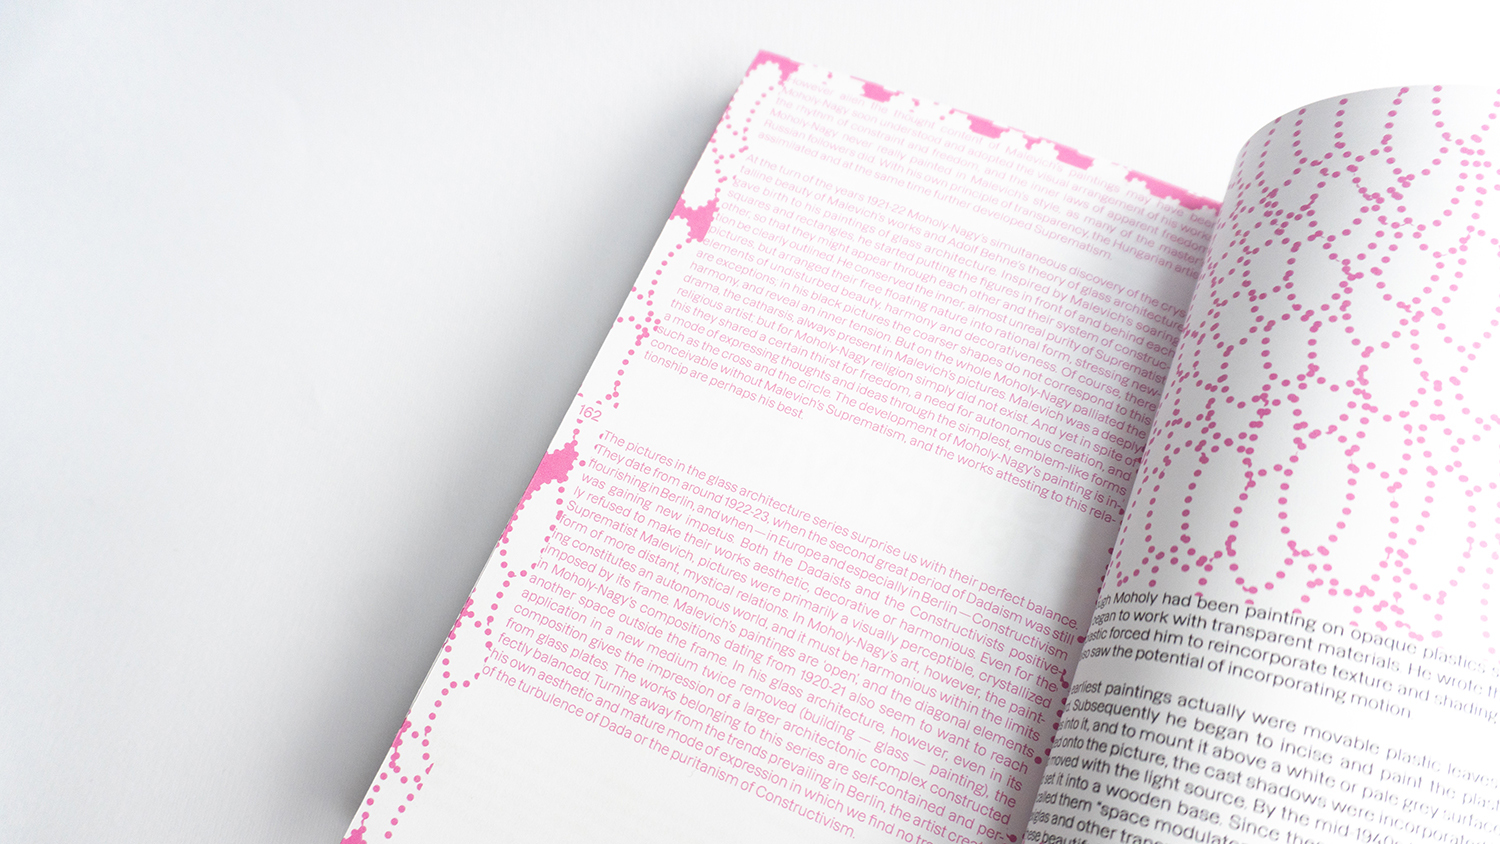 However when the thought content of Malevich's paintings may have been
Moholy-Nagy soon understood and adopted the visual arrangement of his work,
the rhythm of constraint and freedom, and the inner laws of apparent freedom.
Moholy-Nagy never really painted in Malevich's style, as many of the master's
Russian followers did. With his own principle of transparency, the Hungarian artist
assimilated and at the same time further developed Suprematism.
At the turn of the years 1921-22 Moholy-Nagy's simultaneous discovery of the crys-
talline beauty of Malevich's works and Adolf Behne's theory of glass architecture
gave birth to his paintings of glass architecture. Inspired by Malevich's soaring
squares and rectangles, he started putting the figures in front of and behind each
other, so that they might appear through each other and their system of construc-
tion be clearly outlined. He conserved the inner, almost unreal purity of Suprematist
pictures, but arranged their free floating nature into rational form, stressing new
elements of undisturbed beauty, harmony and decorativeness. Of course, there
are exceptions, in his black pictures the coarser shapes do not correspond to this
harmony, and reveal an inner tension. But on the whole Moholy-Nagy palliated the
drama, the catharsis, always present in Malevich's pictures. Malevich was a deeply
religious artist, but for Moholy-Nagy religion simply did not exist. And yet in spite of
this they shared a certain thirst for freedom, a need for autonomous creation, and
a mode of expressing thoughts and ideas through the simplest, emblem-like forms
such as the cross and the circle. The development of Moholy-Nagy's painting is in-
conceivable without Malevich's Suprematism, and the works attesting to this rela-
tionship are perhaps his best.
162
The pictures in the glass architecture series surprise us with their perfect balance.
They date from around 1922-23, when the second great period of Dadaism was still
flourishing in Berlin, and when — in Europe and especially in Berlin — Constructivism
was gaining new impetus. Both the Dadaists and the Constructivists positive-
ly refused to make their works aesthetic, decorative or harmonious. Even for the
Suprematist Malevich, pictures were primarily a visually perceptible, crystallized
form of more distant, mystical relations. In Moholy-Nagy's art, however, the paint-
ing constitutes an autonomous world, and it must be harmonious within the limits
imposed by its frame. Malevich's paintings are 'open', and the diagonal elements
in Moholy-Nagy's compositions dating from 1920-21 also seem to want to reach
another space outside the frame. In his glass architecture, however, even in its
application in a new medium twice removed (building — glass — painting), the
composition gives the impression of a larger architectonic complex constructed
from glass plates. The works belonging to this series are self-contained and per-
fectly balanced. Turning away from the trends prevailing in Berlin, the artist crea
his own aesthetic and mature mode of expression in which we find no tra
of the turbulence of Dada or the puritanism of Constructivism.
ugh Moholy had been painting on opaque plastics
egan to work with transparent materials. He wrote th
astic forced him to reincorporate texture and shading
so saw the potential of incorporating motion
earliest paintings actually were movable plastic leaves
Subsequently he began to incise and paint the plast
into it, and to mount it above a white or pale grey surface
onto the picture, the cast shadows were incorporate
moved with the light source. By the mid-1940s
set it into a wooden base. Since the
called them "space modulato
glas and other tran
ese beautif